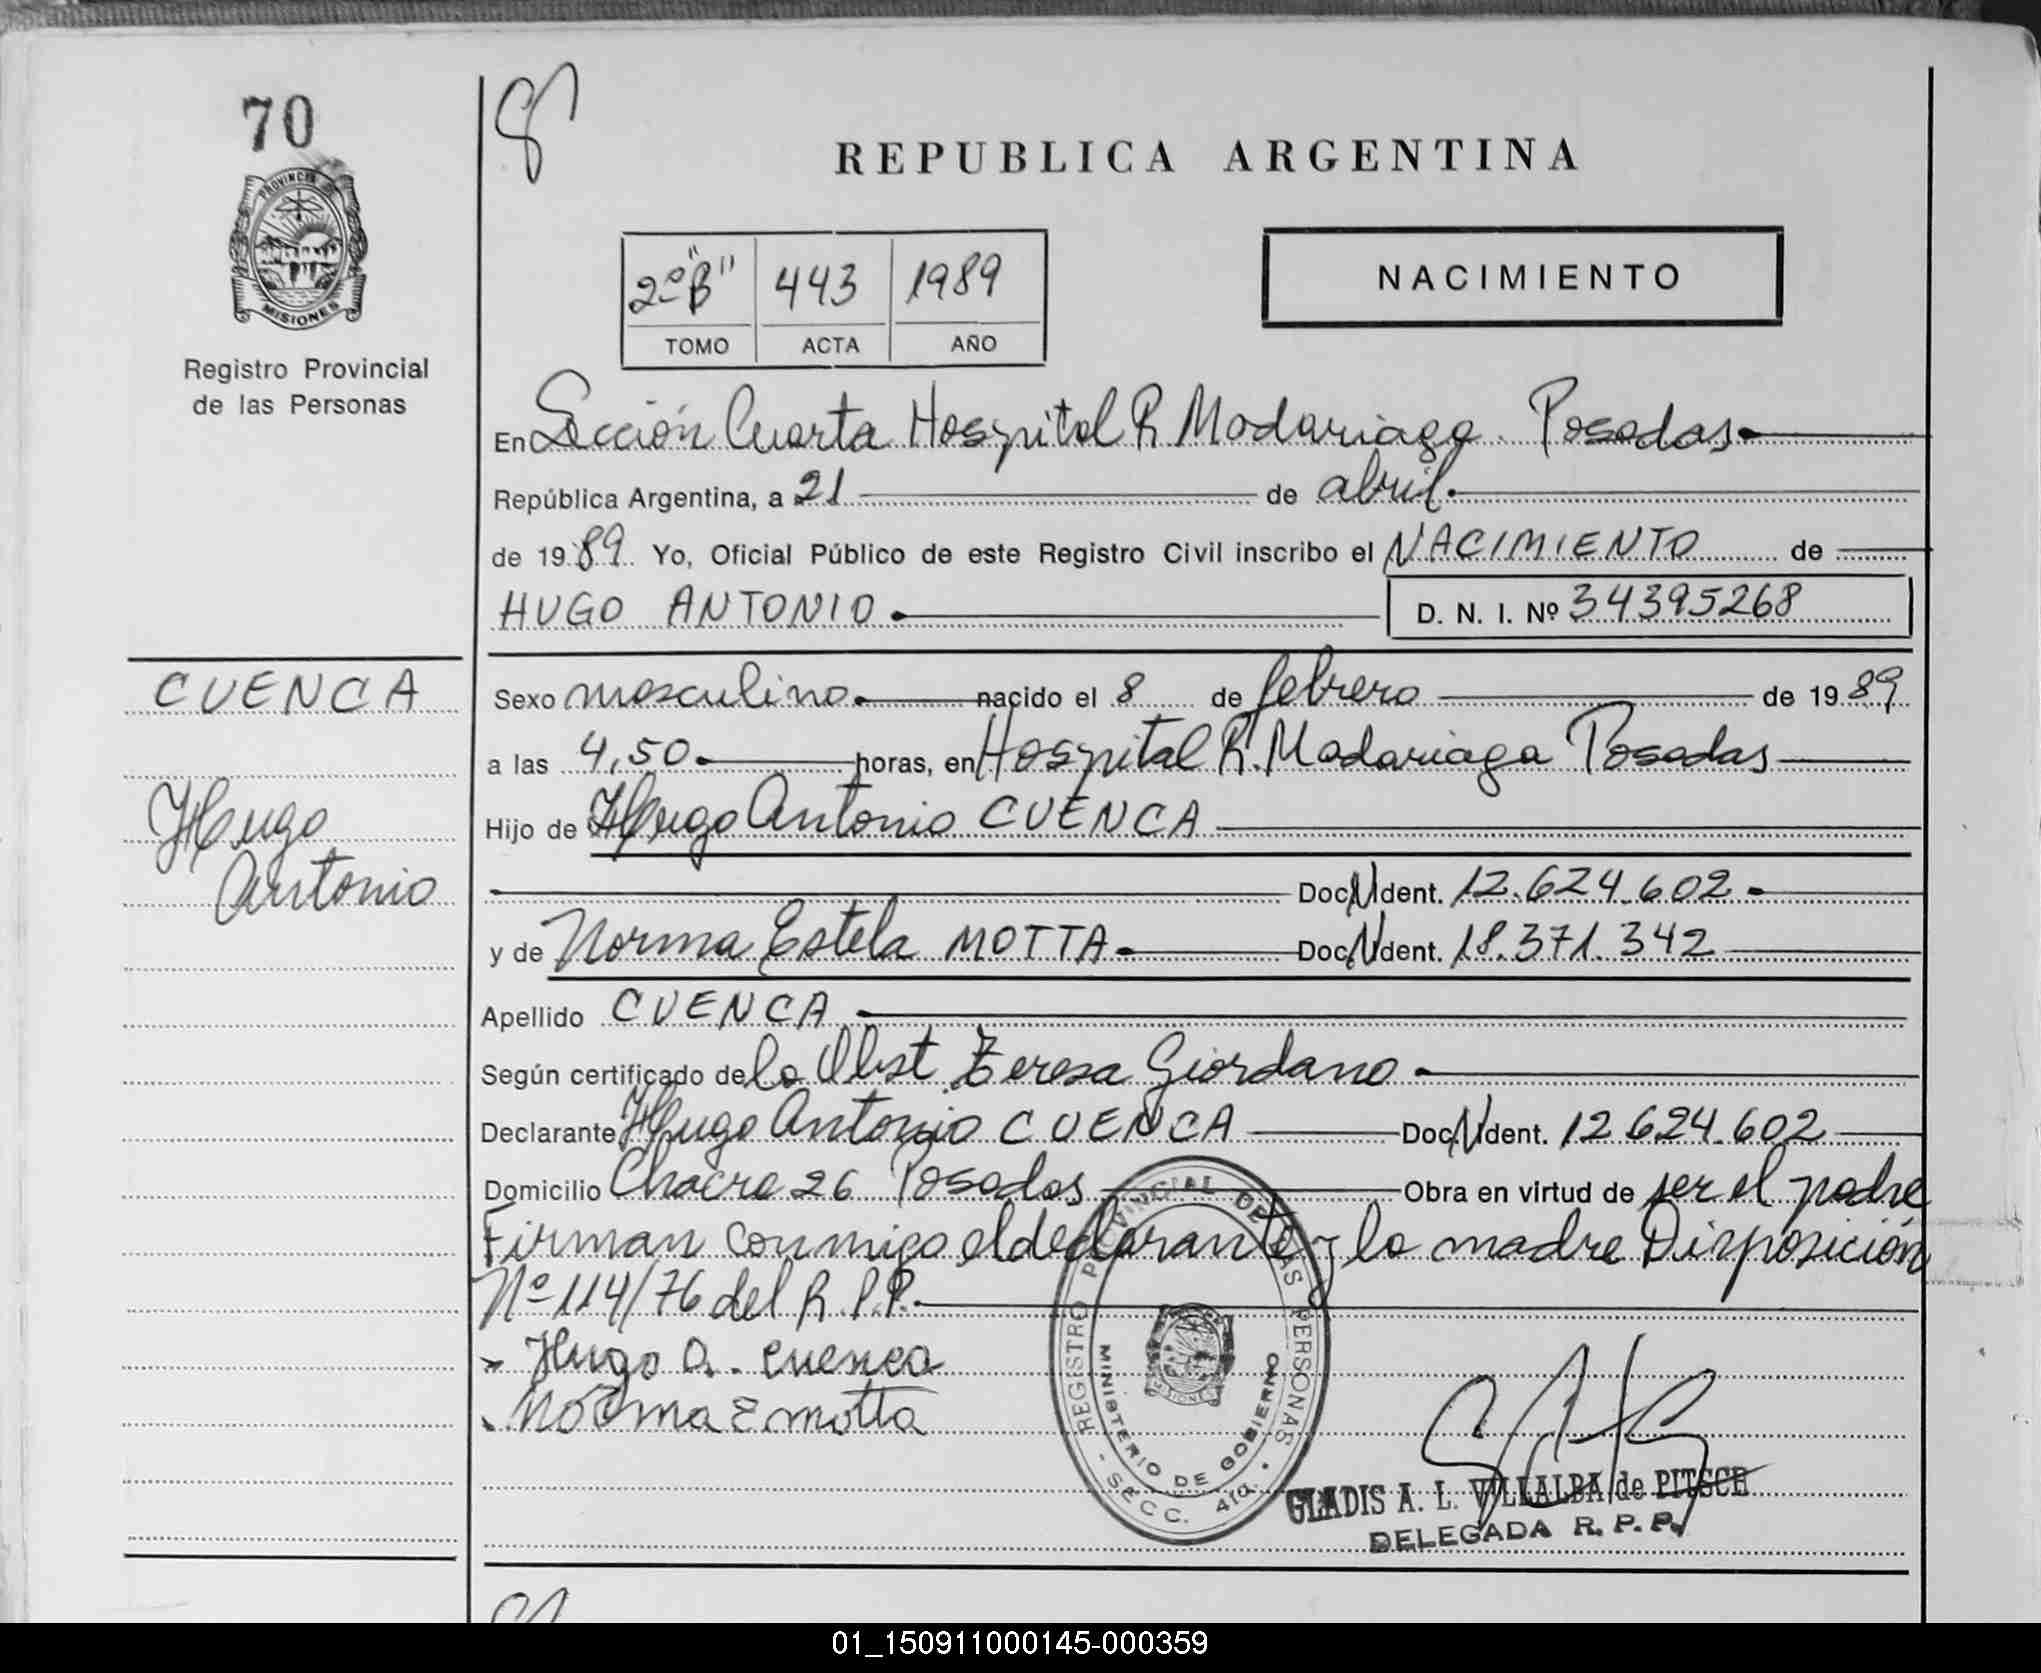 70
PROVINCIA DE
MISIONES
Registro Provincial
de las Personas
CUENCA
Hugo
Antonio
REPUBLICA ARGENTINA
2º "B" 443 1989
TOMO ACTA AÑO
NACIMIENTO
En Sección Cuarta Hospital R Madariaga Posadas
República Argentina, a 21 de abril
de 1989 Yo, Oficial Público de este Registro Civil inscribo el NACIMIENTO de
HUGO ANTONIO D. N. I. Nº 34395268
Sexo masculino nacido el 8 de febrero de 1989
a las 4,50 horas, en Hospital R. Madariaga Posadas
Hijo de Hugo Antonio CUENCA
Doc. N Ident. 12.624.602
y de Norma Estela MOTTA Doc. N Ident. 18.371.342
Apellido CUENCA
Según certificado de la Obst Teresa Giordano
Declarante Hugo Antonio CUENCA Doc. N Ident. 12.624.602
Domicilio Chacra 26 Posadas Obra en virtud de ser el padre
Firman conmigo el declarante y la madre Disposición
Nº 114/76 del R.P.P.
Hugo A. Cuenca
Norma E motta
REGISTRO PROVINCIAL DE LAS PERSONAS
MINISTERIO DE GOBIERNO
SECC. 4ta.
GLADIS A. L. VILLALBA de PITSCH
DELEGADA R. P. P.
01_150911000145-000359